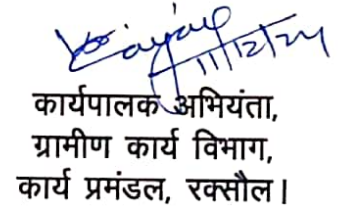 11/12/24
कार्यपालक अभियंता,
ग्रामीण कार्य विभाग,
कार्य प्रमंडल, रक्सौल।